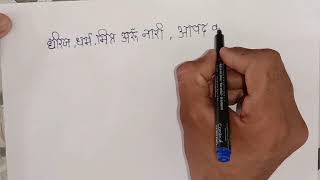 धीरज, धर्म, मित्र अरू नारी, आपद